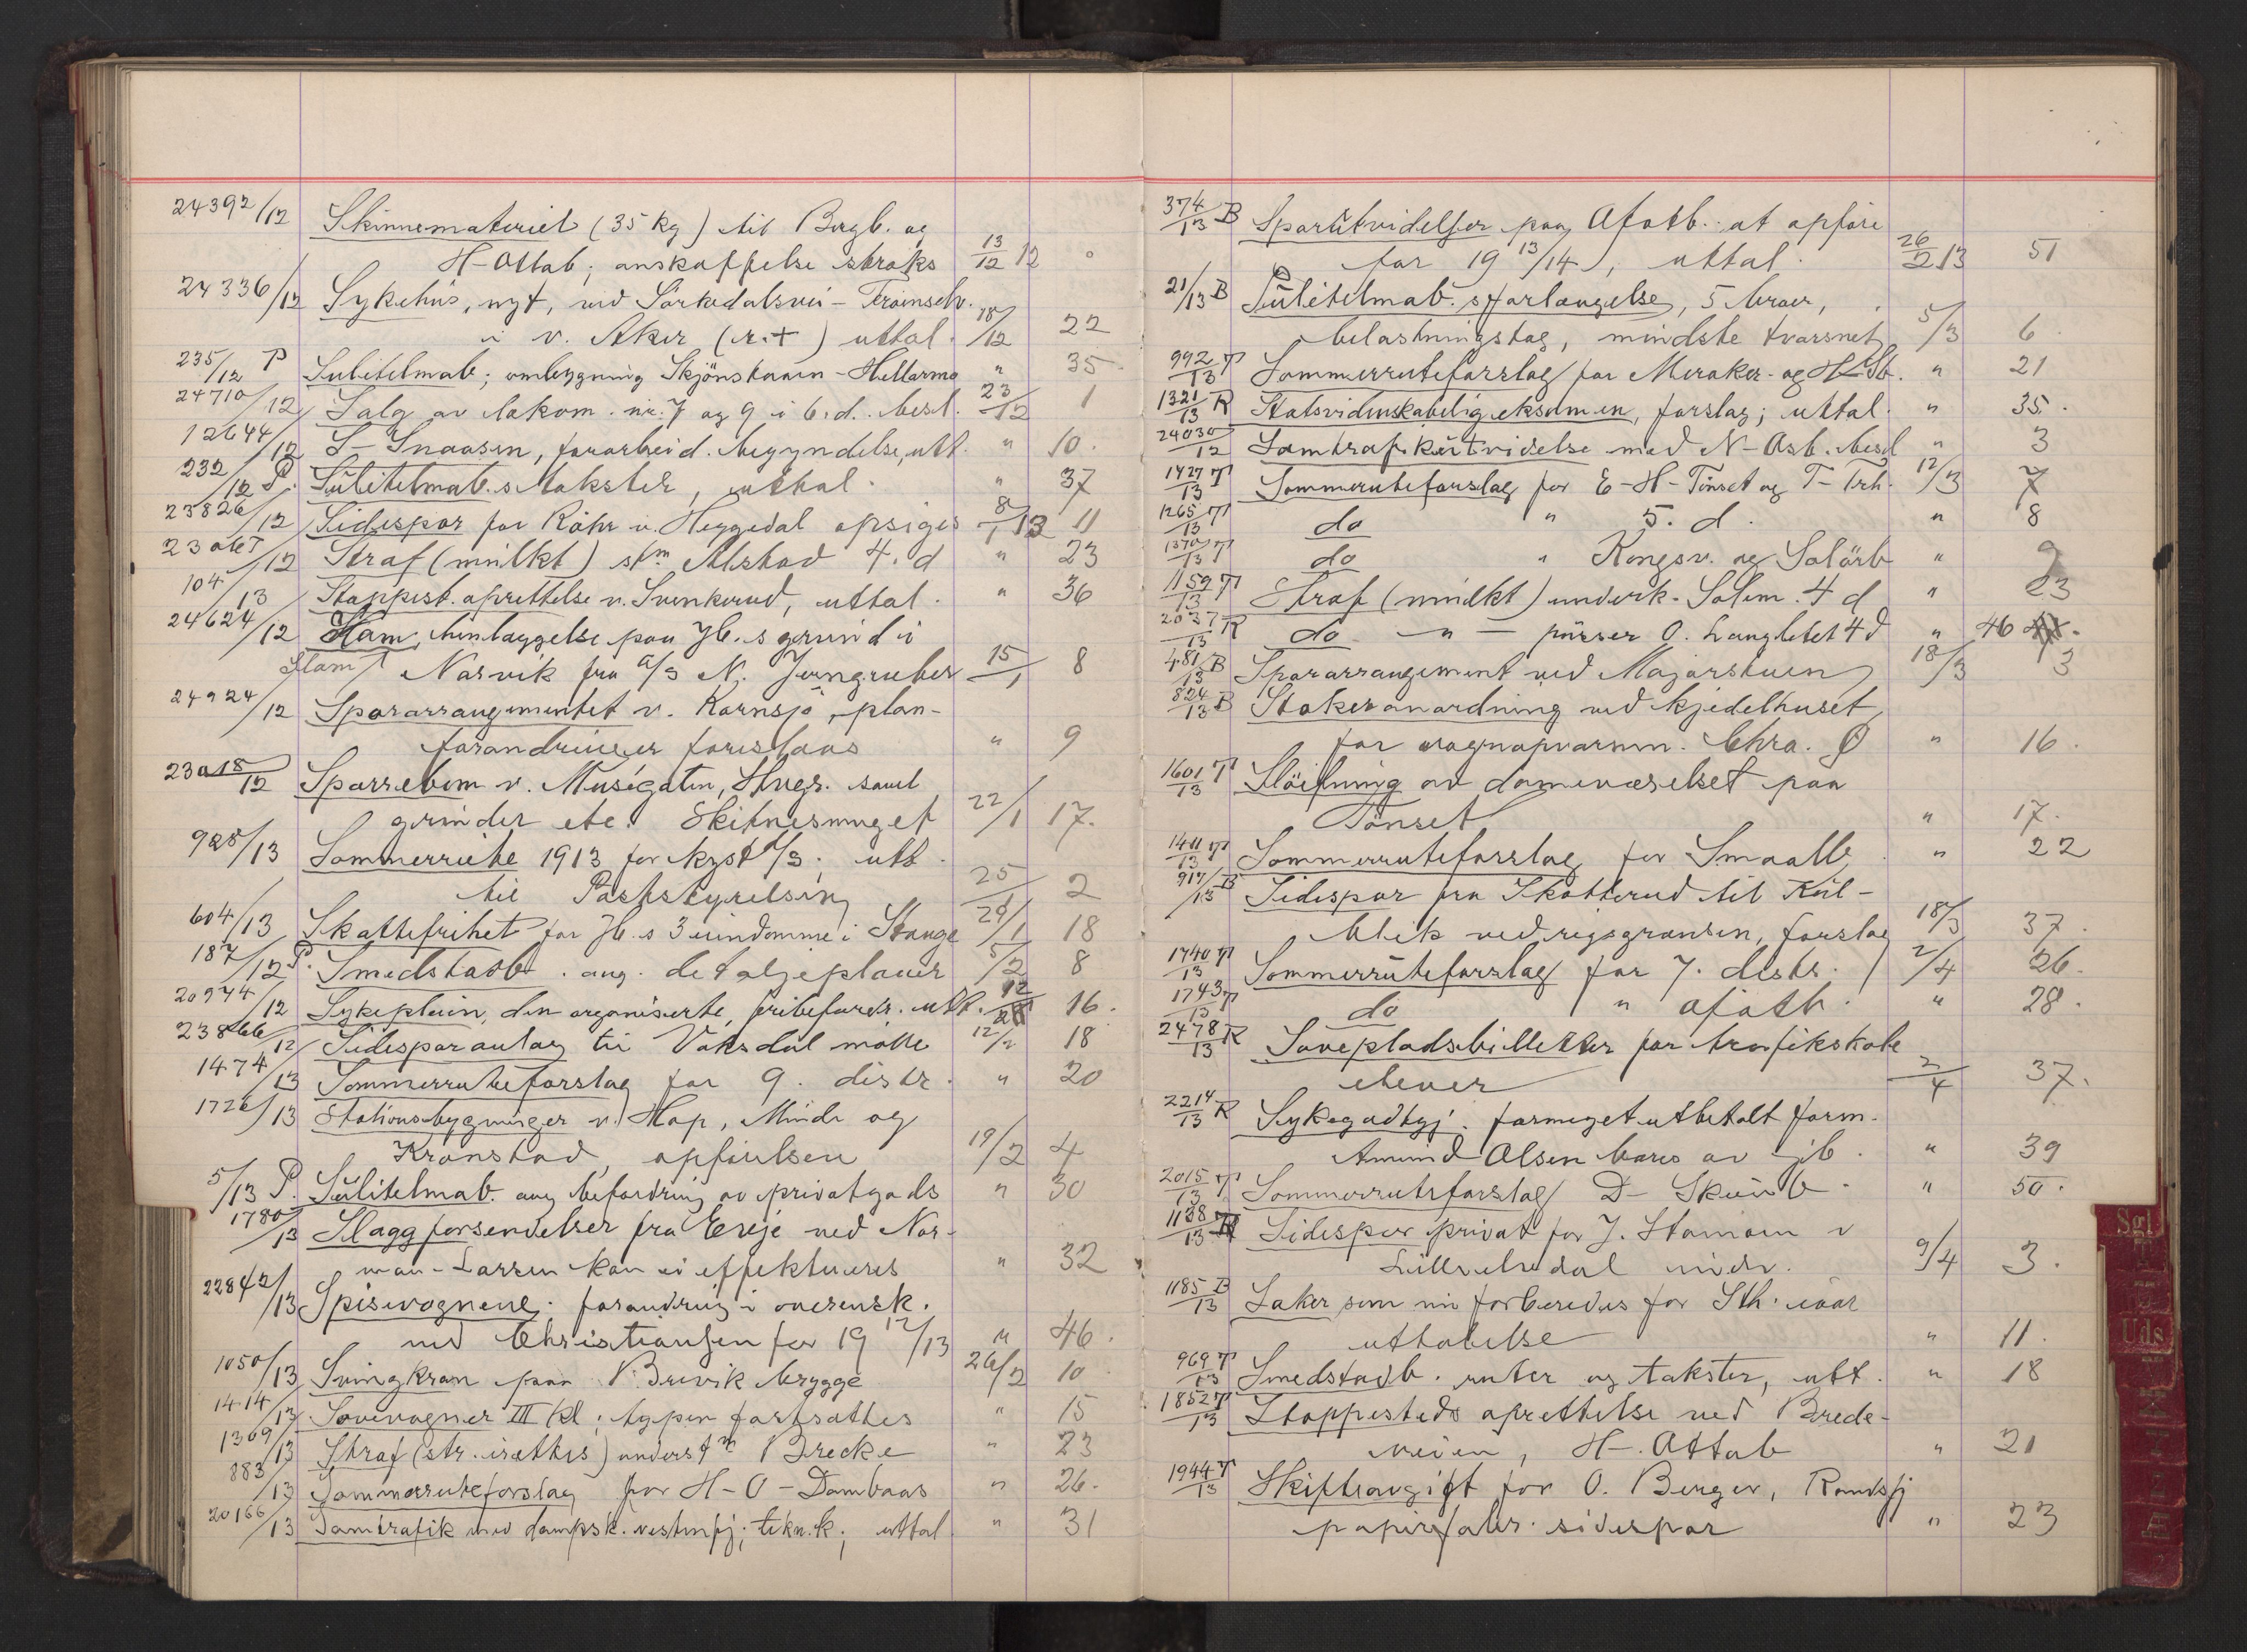 24392/12 Skinnemateriel (35 kg) til Bergb. og
H-Ottab; anskaffelse straks 13/12 12
24336/12 Sykehus, nyt, ved Sörkedalsvei -
i v. Aker (r.t) uttal. 18/12 22
235/12 P Sulitelmab; ombygning Skjönstuaen - Hellarmo " 35
24710/12 Salg av lokom. nr. 7 og 9 i 6. d. besl. 23/12 1
12644/12 S-Snaasen, forarbeid. begyndelse, utt. " 10.
232/12 P. Sulitelmab.s takster, uttal. " 37
23826/12 Sidespor for Röhr v. Heggedal opsiges 8/1 13 11
/12 Straf (mulkt) stm Alstad 4. d " 23
104/13 Stoppest. oprettelse v. Svenkerud, uttal. " 36
24624/12 beslaggelse paa Jb.s grund i
Slam Narvik fra A/S N. Jerngruber 15/1 8
24924/12 Spararrangementet v. Kornsjö, plan-
forandringer foreslaas " 9
23018/12 Sparrebom v. Muségaten, Stvgr. samt
grinder etc. Skitnesmuget 22/1 17.
925/13 Sommerrute 1913 for kyst A/S. utt.
til Poststyrelsen 25/1 2
604/13 Skattefrihet for Jb.s 3 eiendomme i Stange 29/1 18
187/12 P. Smedstadb. ang. detaljeplaner 5/2 8
20974/12 Sykepleien, den organiserte, fribefordr. utt. 12/2 16.
23866/12 Sidesporanlæg til Vaksdal mölle 12/2 18
1474/13 Sommerruteforslag for 9. distr. " 20
1726/13 Stationsbygninger v. Hop, Minde og
Kronstad, opförelsen 19/2 4
5/13 P. Sulitelmab. ang befordring av privatgods " 30
1780/13 Slaggforsendelser fra Ereje ved Nor-
man-Larsen kan ei effektueres " 32
22842/13 Spisevognene; forandring i overensk.
med Christiansen for 19 12/13 " 46.
1050/13 Svingkran paa Brevik brygge 26/2 10
1414/13 Sovevogner III Kl; typen fortsættes " 15
1369/13 Straf (str. irættes) underst m Brecke " 23
883/13 Sommerruteforslag for H-O-Dombaas " 26.
20166/13 Samtrafik med dampsk. vestenfj; tekn. k; uttal. " 31
374/13 B Sporutvidelser paa Ofotb. at opföre
for 19 13/14, uttal. 26/2 13 51
21/13 B Sulitelmab.s forlængelse, 5 broer,
belastningstog, mindste tværsnet 5/3 6.
992/13 T Sommerruteforslag for Meraker- og H-Sb. " 21
1321/13 R Statsvidenskabelig eksamen, forslag; uttal. " 35.
24030/12 Samtrafikutvidelse med N-Asb. besl " 3
1427/13 T Sommerruteforslag for E-H-Tönset og T-Trh. 12/3 7
1265/13 T do " 5. d. " 8
1370/13 T do " Kongsv. og Solörb " 9
1159/13 T Straf (mulkt) underk. Solem. 4 d " 23
2037/13 R do - " - pusser O. Langletet 4 d " 46
481/13 B Spararrangement ved Majorstuen 18/3 3
824/13 B Stokeranordning ved kjedelhuset
for vognopvarmn. Chra. Ø " 16.
1601/13 T Slöifning av dameværelset paa
Tönset " 17.
1411/13 T Sommerruteforslag for Smaalb. " 22
917/13 B Sidespor fra Skotterud til Kul-
blik ved rigsgrænsen, forslag 18/3 37.
1740/13 T Sommerruteforslag for 7. distr. 2/4 26.
1743/13 T do " ofotb. " 28.
2478/13 R Sovepladsbilletter for trafikskole
elever 2/4 37.
2214/13 R Sykegodtgj. formeget utbetalt form.
Amund Olsen bæres av jb. " 39
2015/13 T Sommerruteforslag D- Skienb. " 50.
1138/13 Sidespor privat for J. Stamoen v
Lilleelvedal nedr. 9/4 3.
1185/13 B Saker som nu forberedes for Sth. iaar
uttalelse " 11.
969/13 T Smedstadb. ruter og takster, utt. " 18
1852/13 T Stoppesteds oprettelse ved Brede-
veien, H-. Ottab " 21
1944/13 T Skifteavgift for O. Berger, Randsfj
papirfabr. sidespor " 23
Sgl
T
Uds